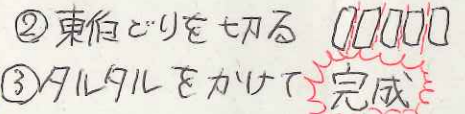 ②東伯どりを切る
③タルタルをかけて 完成